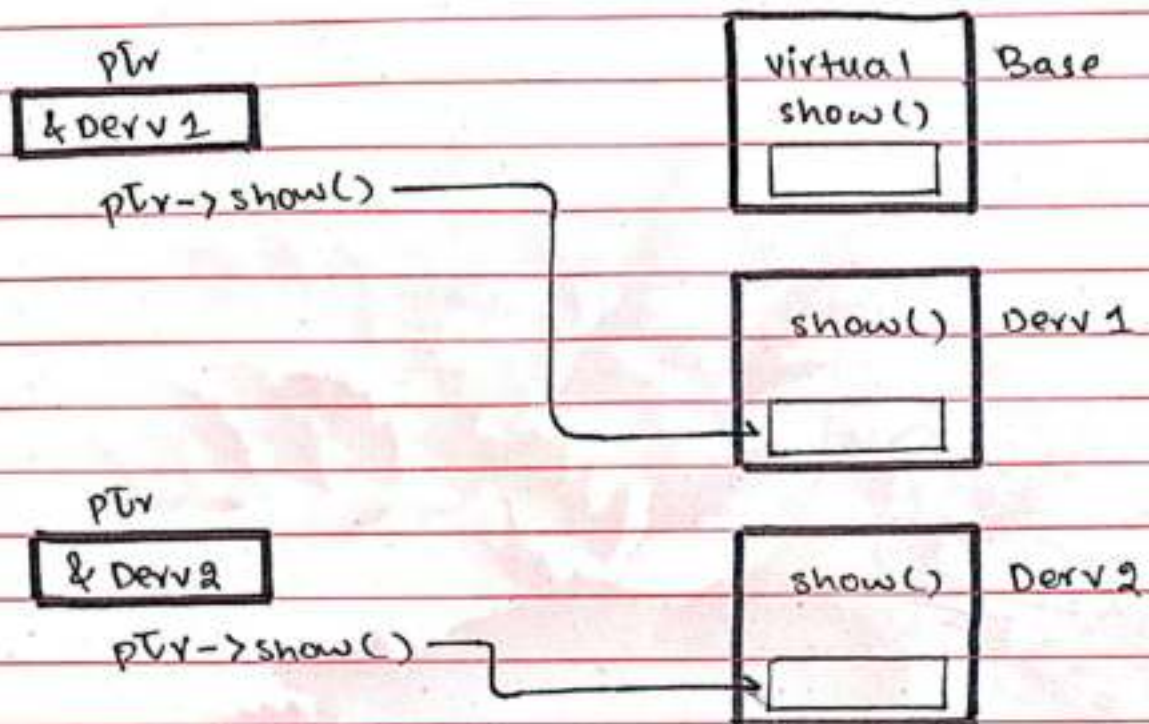 ptr
& Derv 1
ptr->show()
virtual
show()
Base
show()
Derv 1
ptr
& Derv2
ptr->show()
show()
Derv 2